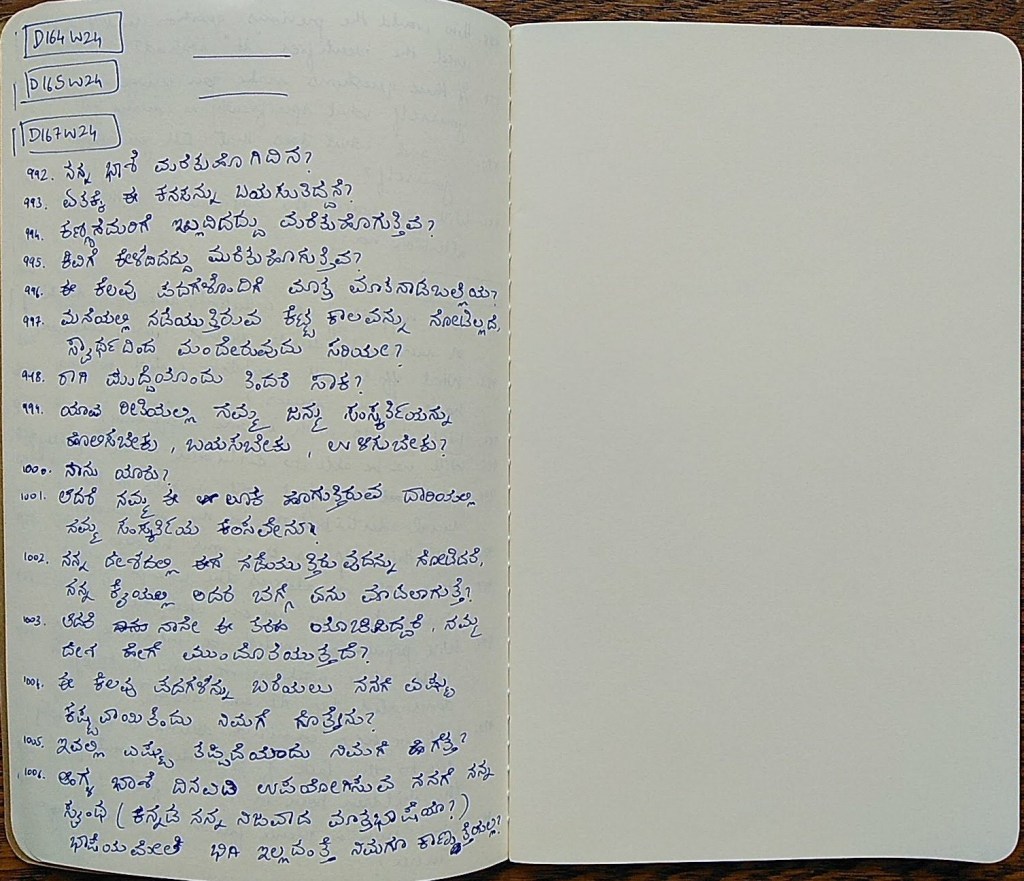 D164W24
D165W24
D167W24
992. ನನ್ನ ಭಾಶೆ ಮರೆತುಹೊಗಿದಿನ?
993. ಏತಕ್ಕೆ ಈ ಕನಸನ್ನು ಬಯಸುತಿದ್ದನೆ?
994. ಕಣ್ಣಗೆಮರಿಗೆ ಇಲ್ಲದಿದದ್ದು ಮರೆತುಹೊಗುತ್ತಿವ?
995. ಕಿವಿಗೆ ಕೇಳದಿದದ್ದು ಮರೆತುಹೊಗುತ್ತಿವ?
996. ಈ ಕೆಲವು ಪದಗಳೊಂದಿಗೆ ಮಾತ್ರ ಮಾತನಾಡಬಲ್ಲೆಯ?
997. ಮನೆಯಲ್ಲಿ ನಡೆಯುತ್ತಿರುವ ಕೆಟ್ಟ ಕಾಲವನ್ನು ನೋಟಿಲ್ಲದೆ,
ಸ್ವಾರ್ಥದಿಂದ ಮಂದೇರುವುದು ಸರಿಯೇ?
998. ರಾಗಿ ಮುದ್ದೆಯೊಂದು ತಿಂದರೆ ಸಾಕ?
999. ಯಾವ ರೀತಿಯಲ್ಲಿ ನಮ್ಮ ಜನ್ಮ ಸಂಸ್ಕರ್ತಿಯನ್ನು
ಹೊಲಿಸಬೇಕು, ಬಯಸಬೇಕು, ಉಳಿಸುಬೇಕು?
1000. ನಾನು ಯಾರು?
1001. ಆದರೆ ನಮ್ಮ ಈ ಲೂಕ ಹೊಗುತ್ತಿರುವ ದಾರಿಯಲ್ಲಿ
ನಮ್ಮ ಸಂಸ್ಕರ್ತಿಯ ಕೆಲಸವೇನು?
1002. ನನ್ನ ದೇಶದಲ್ಲಿ ಈಗ ನಡೆಯುತ್ತಿರುವುದನ್ನು ನೋಟಿದರೆ,
ನನ್ನ ಕೈಯಲ್ಲಿ ಅದರ ಬಗ್ಗೆ ಏನು ಮಾಡಲಾಗುತ್ತೆ?
1003. ಆದರೆ ನಾನೇ ಈ ತರಹ ಯೋಚಿಸಿದ್ದರೆ, ನಮ್ಮ
ದೇಶ ಹೇಗೆ ಮುಂದೂರೆಯುತ್ತದೆ?
1004. ಈ ಕೆಲವು ಪದಗಳನ್ನು ಬರೆಯಲು ನನಗೆ ಎಷ್ಟು
ಕಷ್ಟವಾಯಿತೆಂದು ನಿಮಗೆ ಗೊತ್ತೇನು?
1005. ಇವಲ್ಲಿ ಎಷ್ಟು ತಪ್ಪಿದೆಯೆಂದು ನಿಮಗೆ
1006. ಆಂಗ್ಲ ಭಾಶೆ ದಿನವಿಡಿ ಉಪಯೋಗಿಸುವ ನನಗೆ ನನ್ನ
ಸ್ವಂಥ (ಕನ್ನಡ ನನ್ನ ನಿಜವಾದ ಮಾತ್ರಭಾಷೆಯಾ?)
ಭಾಶೆಯಮೇಲೆ ಇಲ್ಲದಂತ್ತೆ ನಿಮಗೂ ಕಾಣ್ಣುತ್ತೆಯಲ್ಲ?